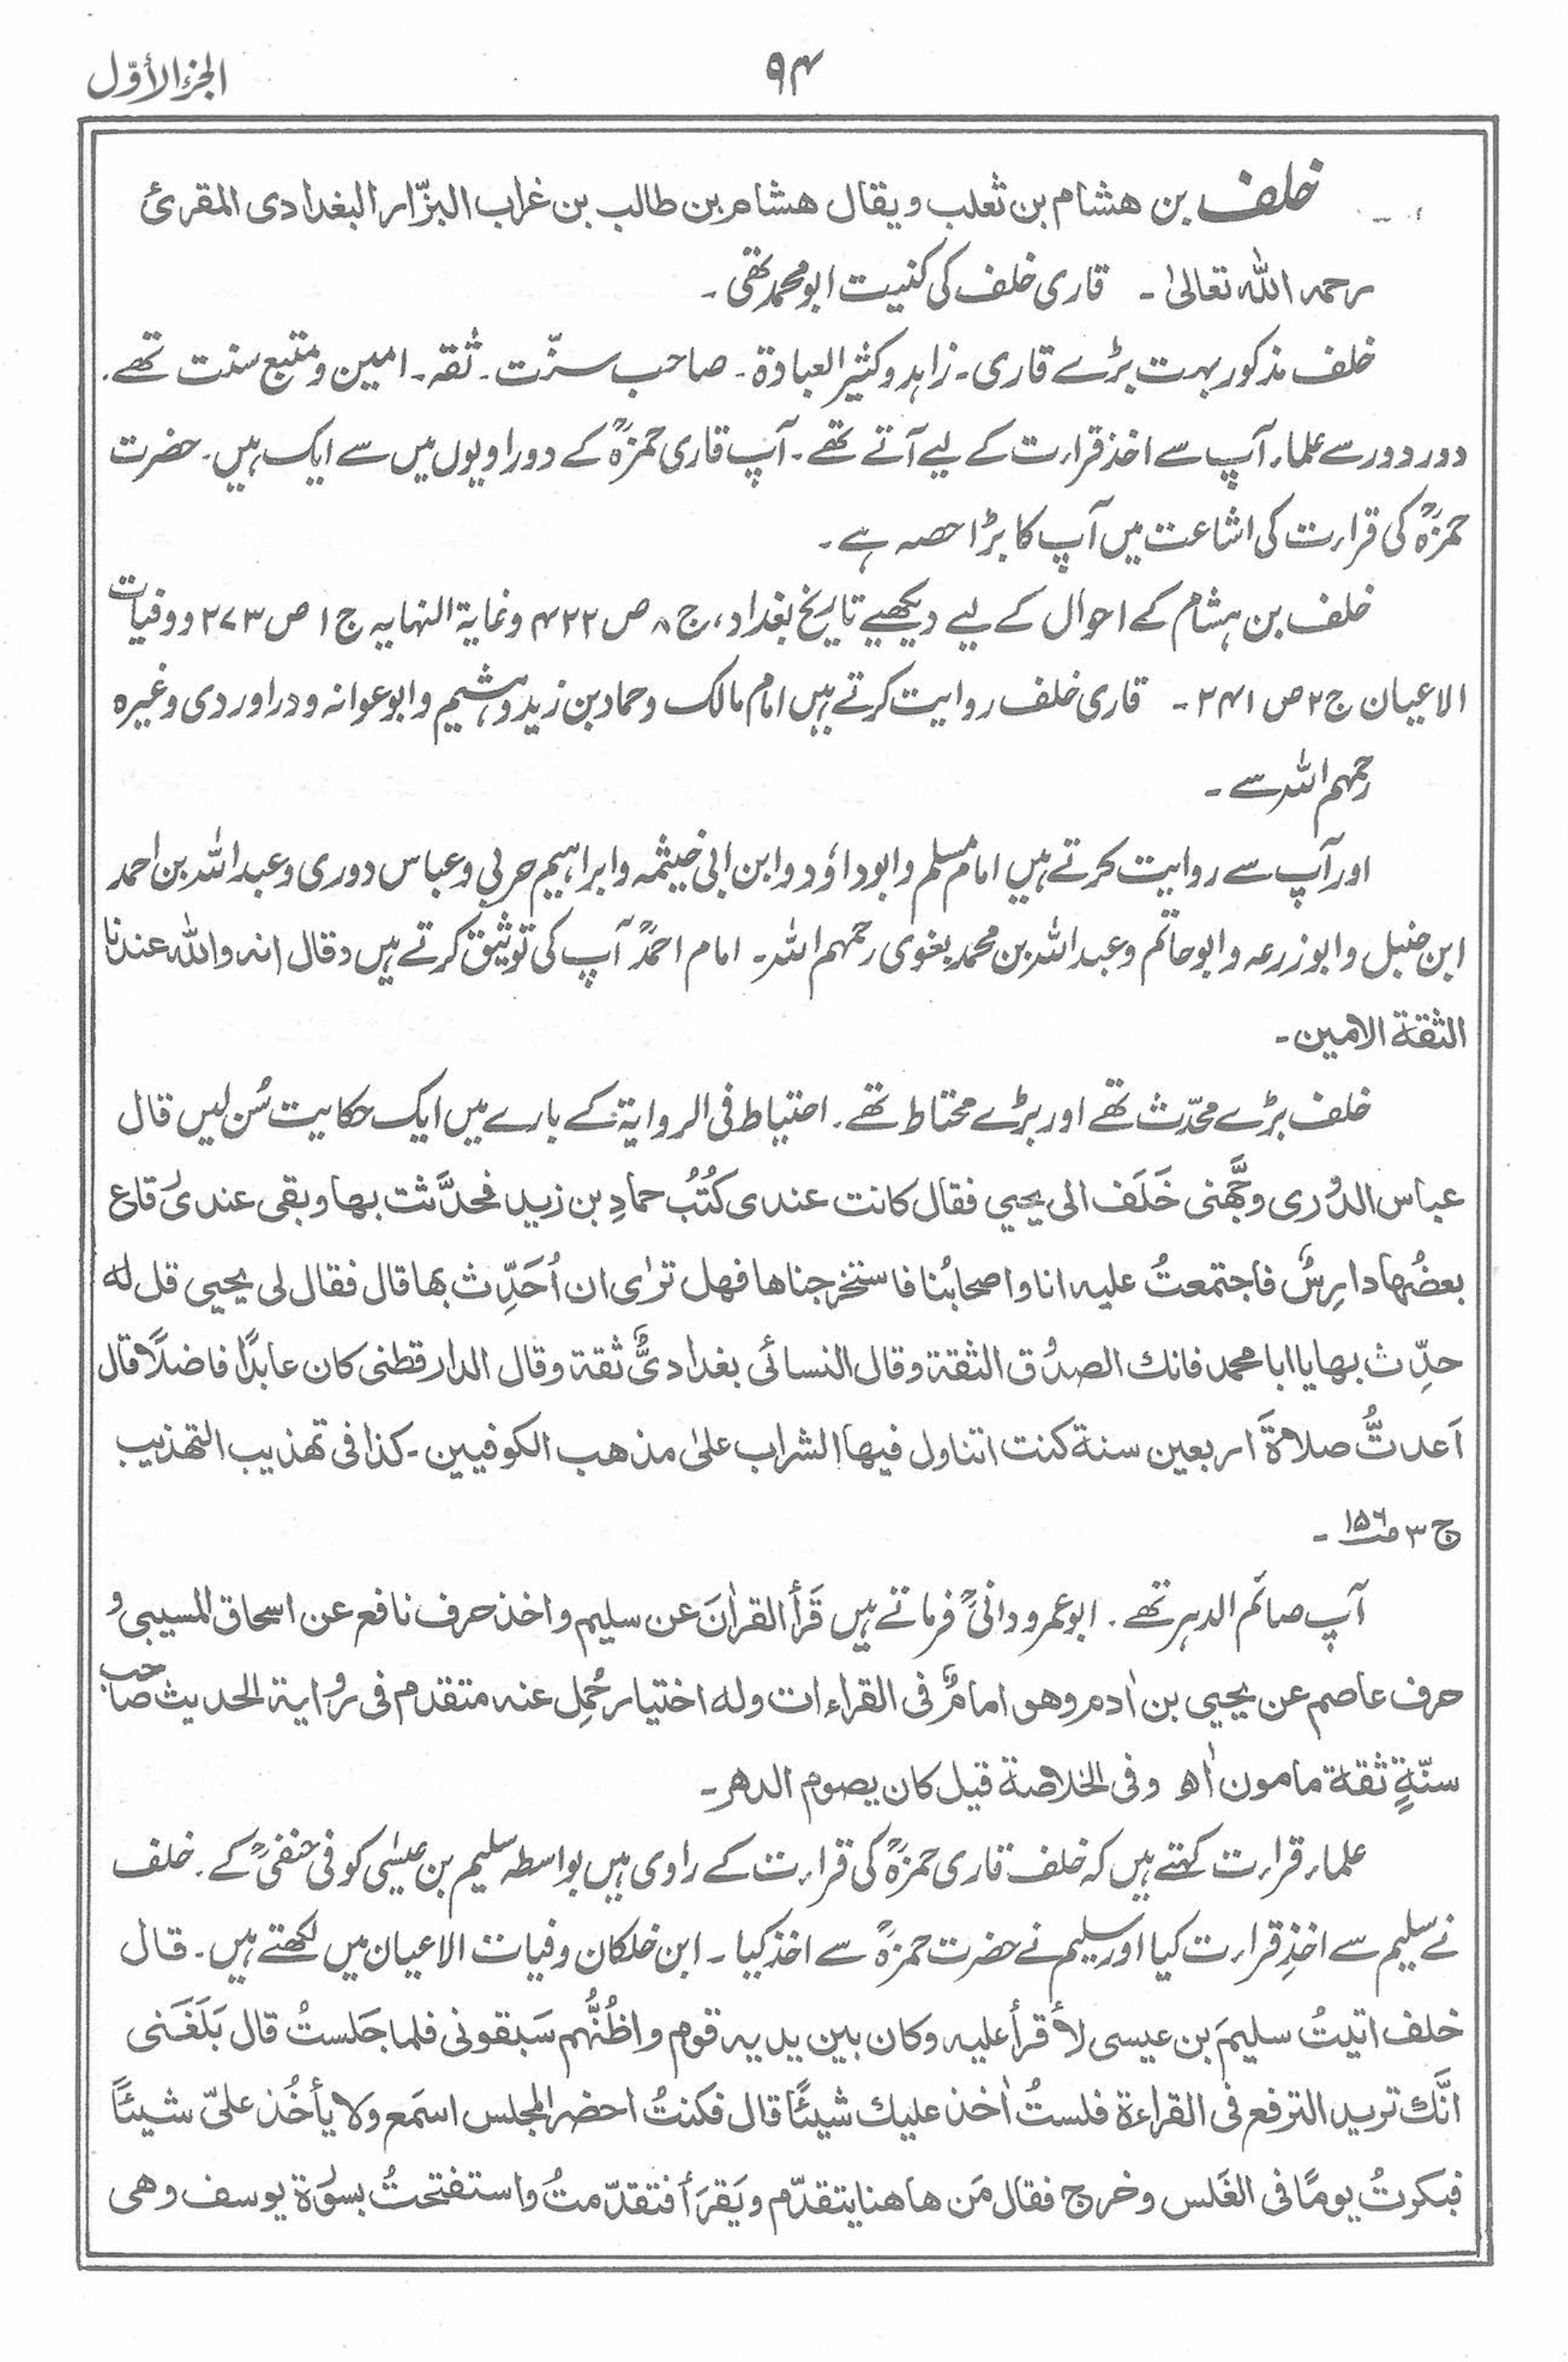 الجزء الأوّل
۹۴
خلف بن هشام بن ثعلب ويقال هشام بن طالب بن غراب البزّار البغدادی المقرئ
رحمه الله تعالیٰ۔ قاری خلف کی کنیت ابو محمد تھی۔
خلف مذکور بہت بڑے قاری۔ زاہد و کثیر العبادۃ۔ صاحب سنّت۔ ثقہ۔ امین و متبع سنت تھے۔
دور دور سے علماء آپ سے اخذ قراءت کے لیے آتے تھے۔ آپ قاری حمزہؒ کے دو راویوں میں سے ایک ہیں۔ حضرت
حمزہؒ کی قراءت کی اشاعت میں آپ کا بڑا حصہ ہے۔
خلف بن ہشام کے احوال کے لیے دیکھیے تاریخ بغداد، ج ۸ ص ۴۲۲ و غایۃ النہایہ ج ۱ ص ۲۷۳ و وفیات
الاعیان ج ۲ ص ۲۴۱۔ قاری خلف روایت کرتے ہیں امام مالک و حماد بن زید و ہشیم و ابو عوانہ و دراوردی وغیرہ
رحمہم اللہ سے۔
اور آپ سے روایت کرتے ہیں امام مسلم و ابو داؤد و ابن ابی خیثمہ و ابراہیم حربی و عباس دوری و عبد اللہ بن احمد
ابن حنبل و ابو زرعہ و ابو حاتم و عبد اللہ بن محمد بغوی رحمہم اللہ۔ امام احمدؒ آپ کی توثیق کرتے ہیں وقال انه والله عندنا
الثقة الامین۔
خلف بڑے محدّث تھے اور بڑے محتاط تھے۔ احتیاط فی الروایۃ کے بارے میں ایک حکایت سُن لیں قال
عباس الدُوری وجَّهنی خَلَف الی یحیی فقال کانت عندی کُتُبُ حمادِ بن زید فحدَّثت بها وبقی عندی رُقاع
بعضُها دارِسٌ فاجتمعتُ علیه انا واصحابُنا فاستخرجناها فهل ترٰی ان اُحَدِّث بها قال فقال لی یحیی قل له
حدِّث بها یا ابا محمد فانك الصدُوق الثقة وقال النسائی بغدادیٌّ ثقة وقال الدارقطنی کان عابدًا فاضلًا قال
اَعدتُّ صلاةَ اربعین سنة کنت اتناول فیها الشراب علیٰ مذهب الکوفیین۔ کذا فی تهذیب التهذیب
ج ۳ صـ ۱۵۶ ۔
آپ صائم الدہر تھے۔ ابو عمرو دانیؒ فرماتے ہیں قَرأ القراٰنَ عن سلیم واخذ حرف نافع عن اسحاق المسیبی و
حرف عاصم عن یحیی بن اٰدم وهو امامٌ فی القراءات وله اختیار حُمِل عنه متقدم فی رِوایة الحدیث صاحب
سنّةٍ ثقة مامون اٰه وفی الخلاصة قیل کان یصوم الدهر۔
علماء قراءت کہتے ہیں کہ خلف قاری حمزہؒ کی قراءت کے راوی ہیں بواسطہ سلیم بن عیسٰی کوفی حنفیؒ کے۔ خلف
نے سلیم سے اخذِ قراءت کیا اور سلیم نے حضرت حمزہؒ سے اخذ کیا۔ ابن خلکان وفیات الاعیان میں لکھتے ہیں۔ قال
خلف اتیتُ سلیمَ بن عیسی لأقرأ علیه وکان بین یدیه قوم واظُنُّهم سَبقونی فلما جَلستُ قال بَلَغَنی
انَّك ترید الترفع فی القراءة فلستُ اٰخذ علیك شیئًا قال فکنتُ احضر المجلس اسمَع ولا یأخُذ علیّ شیئًا
فبکرتُ یومًا فی الغَلس وخرج فقال مَن هاهنا یتقدّم ویَقرَأ فتقدّمتُ واستفتحتُ بسوُرة یوسف وهی